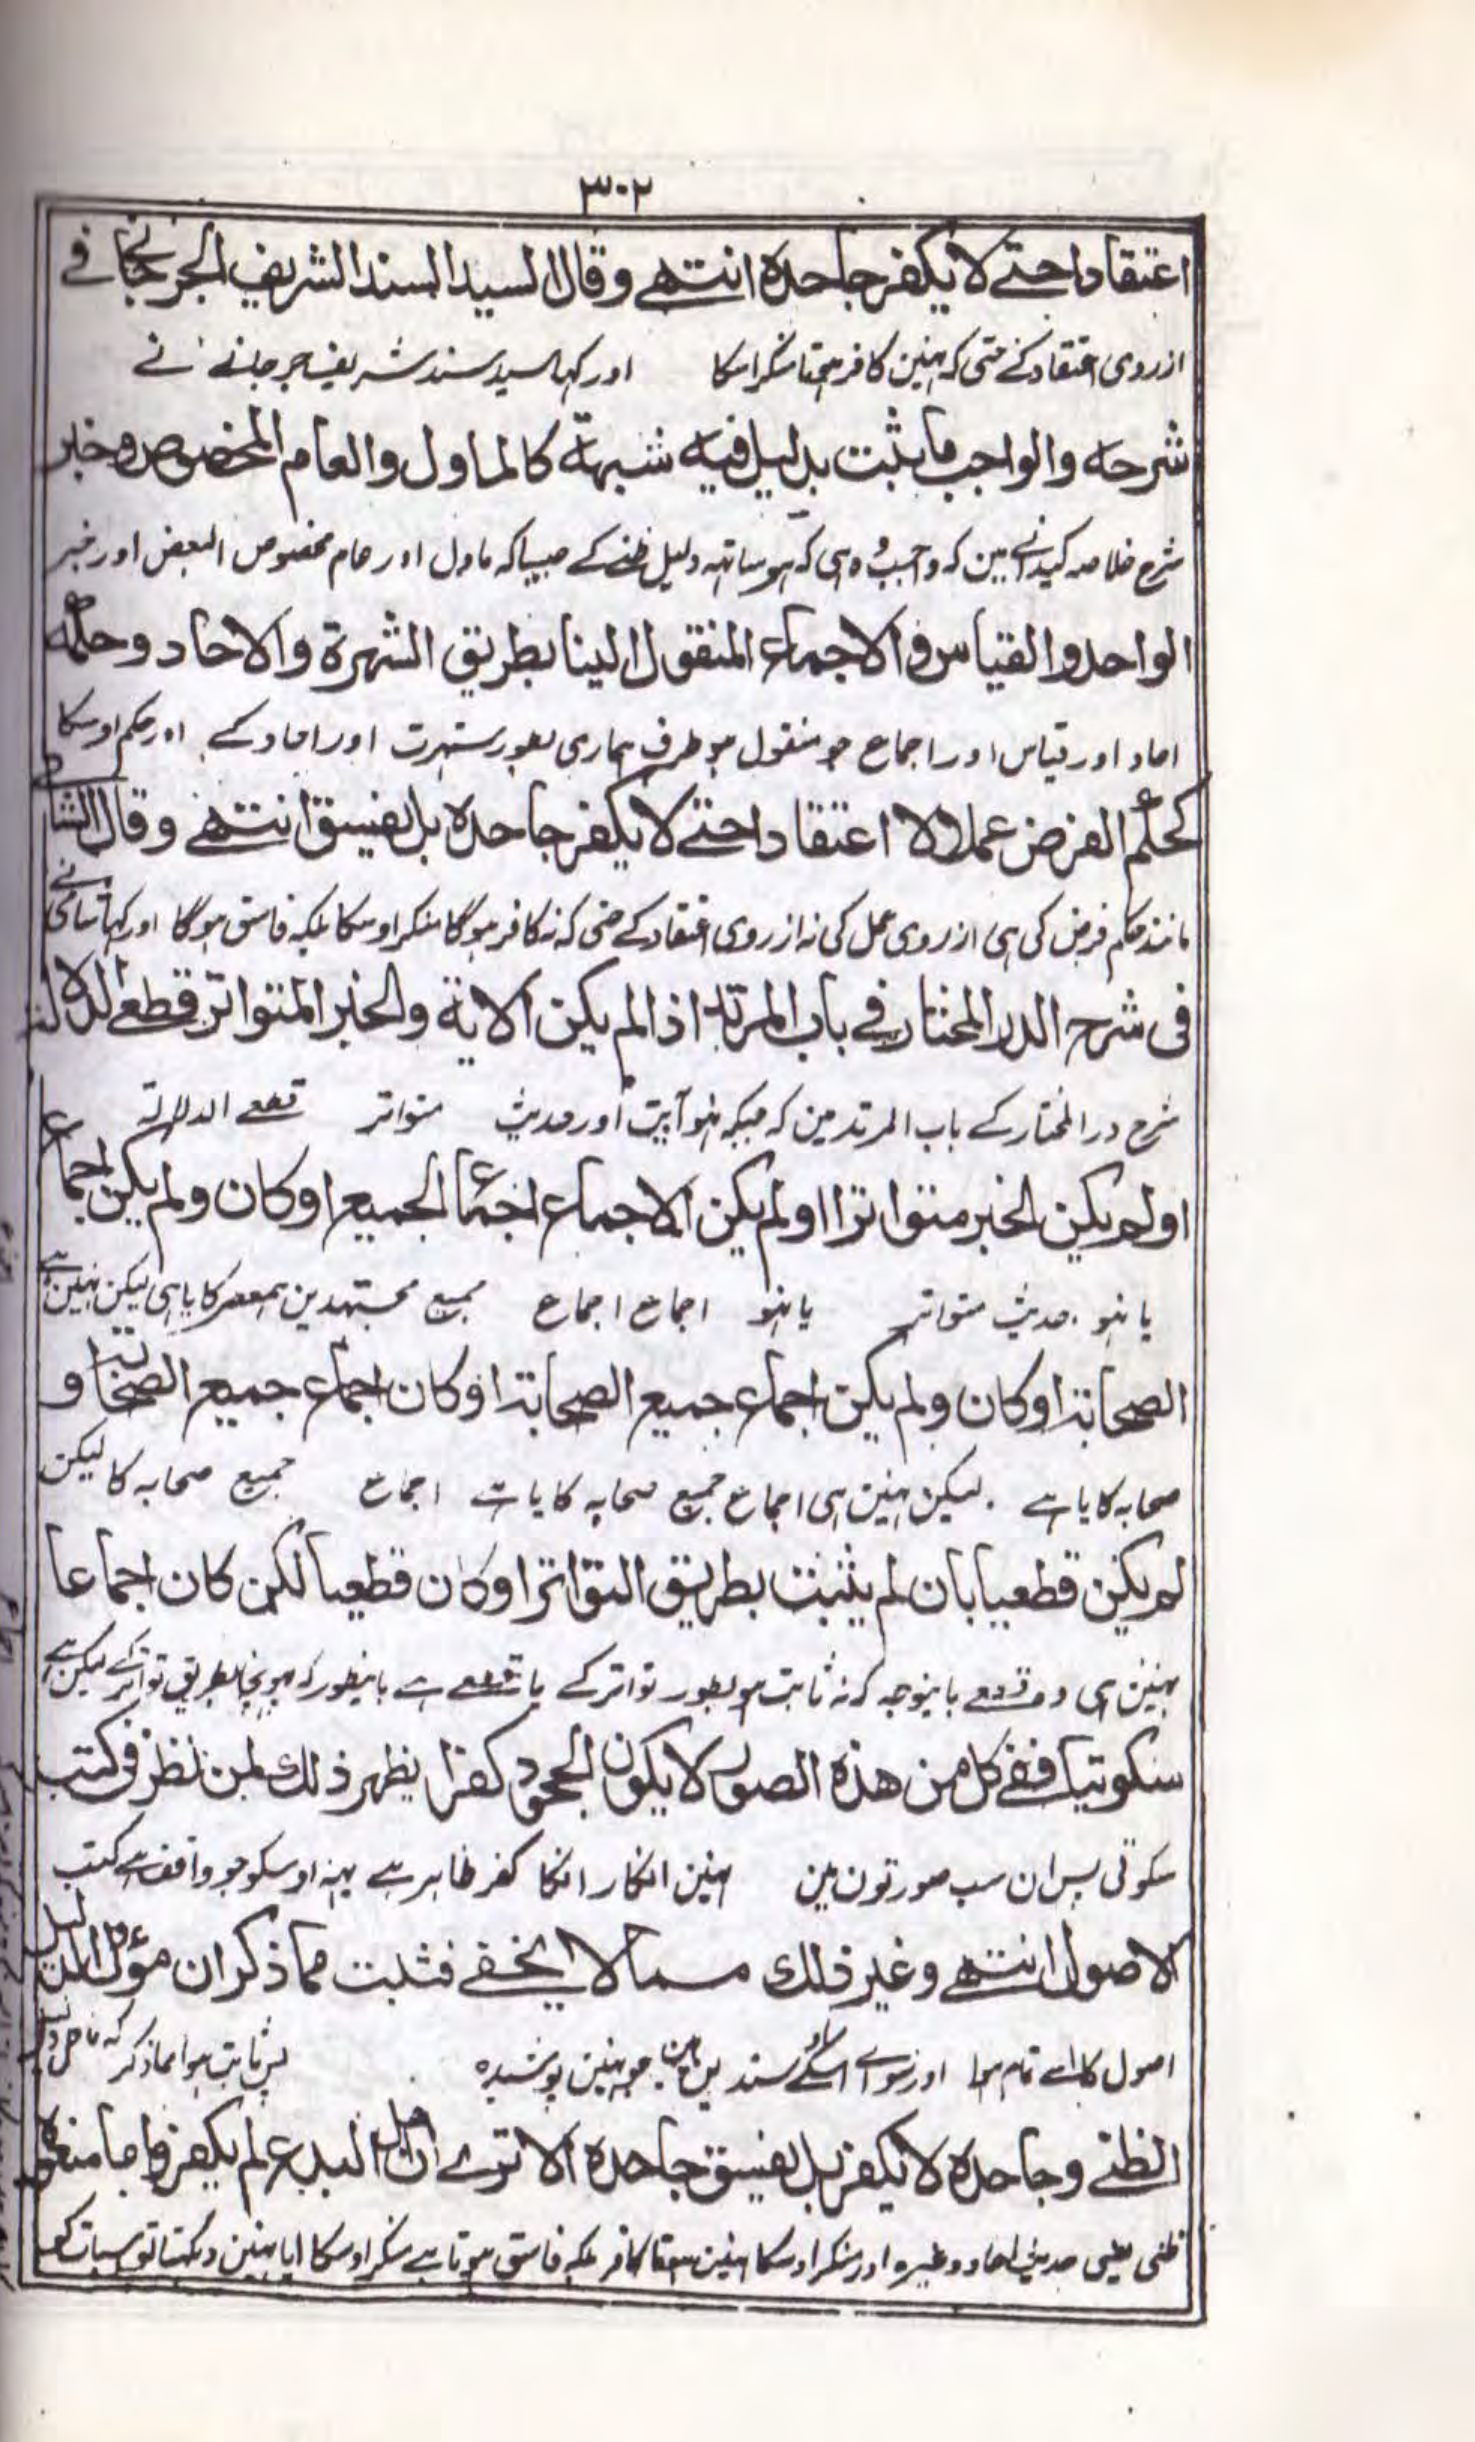 ٣٠٢
اعتقادا حتے لا یکفر جاحدہ انتھے وقال السید السند الشریف الجرجانی فے
ازروی اعتقاد کے حتی کہ نہین کافر ہوتا منکر اسکا اور کہا سید سند شریف جرجانے نے
شرحہ والواجب ما یثبت بدلیل فیہ شبہۃ کالماول والعام المخصوص وخبر
شرح خلاصہ کیدانے مین کہ واجب وہ ہی کہ ہو ساتہہ دلیل ظنے کے جیساکہ ماول اور عام مخصوص البعض اور خبر
الواحد والقیاس والاجماع المنقول الینا بطریق الشہرۃ والاحاد وحکمہ
احاد اور قیاس اور اجماع جو منقول ہو طرف ہماری بطور شہرت اور احاد کے اور حکم اوسکا
کحکم الفرض عملا لا اعتقادا حتے لا یکفر جاحدہ بل یفسق انتھے وقال الشامی
مانند حکم فرض کی ہی ازروی عمل کی نہ ازروی اعتقاد کے حتی کہ نہ کافر ہوگا منکر اوسکا بلکہ فاسق ہوگا اور کہا شامی نے
فی شرح الدر المختار فے باب المرتد اذا لم یکن الایۃ والخبر المتواتر قطعے الدلالۃ
شرح در المختار کے باب المرتد مین کہ جبکہ نہو آیت اور حدیث متواتر قطعے الدلالۃ
او لم یکن الخبر متواترا او لم یکن الاجماع اجماع الجمیع او کان ولم یکن اجماع
یا نہو حدیث متواتر یا نہو اجماع اجماع جمیع مجتہدین ہمعصر کا یا ہی لیکن نہین ہے
الصحابۃ او کان ولم یکن اجماع جمیع الصحابۃ او کان اجماع جمیع الصحابۃ و
صحابہ کا یا ہے لیکن نہین ہی اجماع جمیع صحابہ کا یا ہے اجماع جمیع صحابہ کا لیکن
لم یکن قطعیا بان لم یثبت بطریق التواتر او کان قطعیا لکن کان اجماعا
نہین ہی وہ قطعے باینوجہ کہ نہ ثابت ہو بطور تواتر کے یا قطعے ہے باینطور کہ پہونچا بطریق تواتر کے لیکن ہے
سکوتیا ففے کل من هذه الصور لا یکون الجحود کفرا یظہر ذلک لمن نظر فی کتب
سکوتی پس ان سب صورتون مین نہین انکار انکا کفر ظاہر ہے یہہ اوسکو جو واقف ہے کتب
الاصول انتھے وغیر ذلک مما لا یخفے فثبت مما ذکر ان مؤل الدلیل
اصول کا اسے تمام ہوا اور سواے اسکے سندین ہین جو نہین پوشیدہ پس ثابت ہوا مما ذکر کہ
الظنے وجاحدہ لا یکفر بل یفسق جاحدہ الا ترے ان اہل البدع لم یکفروا
ظنی یعنی حدیث احاد وغیرہ اور منکر اوسکا نہین ہوتا کافر بلکہ فاسق ہوتا ہے منکر اوسکا ایا نہین دیکہتا تو